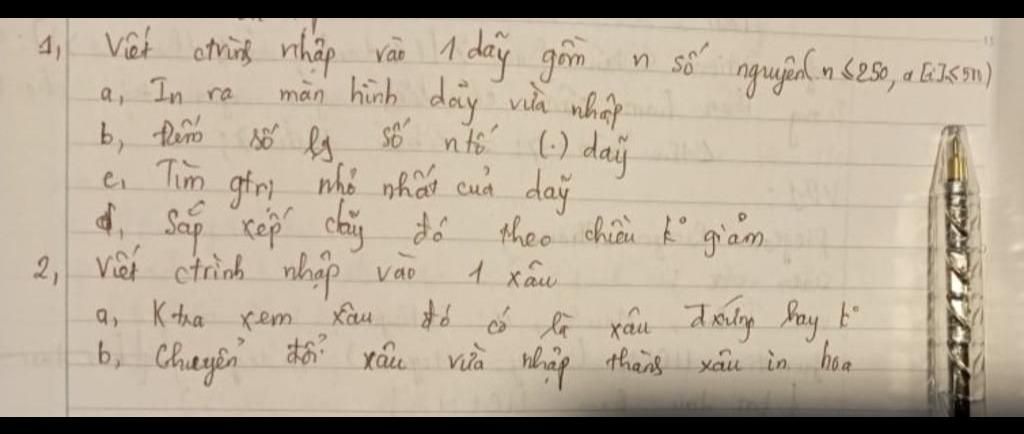 1, Viết ctrình nhập vào 1 dãy gồm n số nguyên (n ≤ 250, a[i] ≤ 511)
a, In ra màn hình dãy vừa nhập
b, Đếm số lg số ntố (.) dãy
c, Tìm gtrị nhỏ nhất của dãy
d, Sắp xếp dãy đó theo chiều k° giảm
2, Viết ctrình nhập vào 1 xâu
a, K·tra xem xâu đó có là xâu đxứng hay k°
b, Chuyển đổi xâu vừa nhập thành xâu in hoa